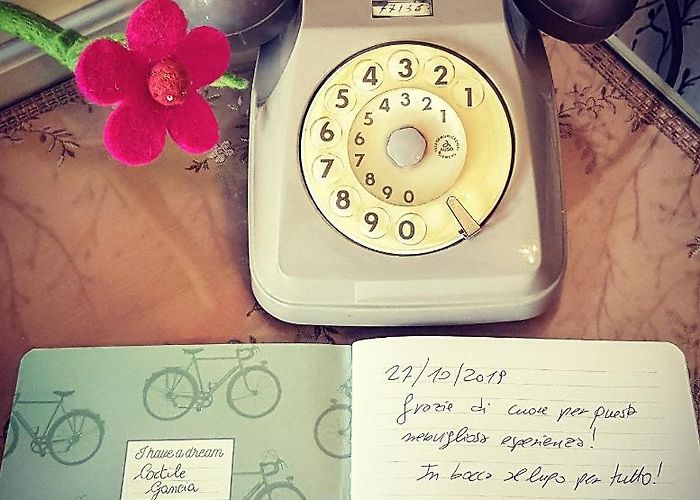 1 2 3 4 5 6 7 8 9 0
1 2 3 4 5 6 7 8 9 0
I have a dream
27/10/2019
Grazie di cuore per questa
meravigliosa esperienza!
In bocca al lupo per tutto!